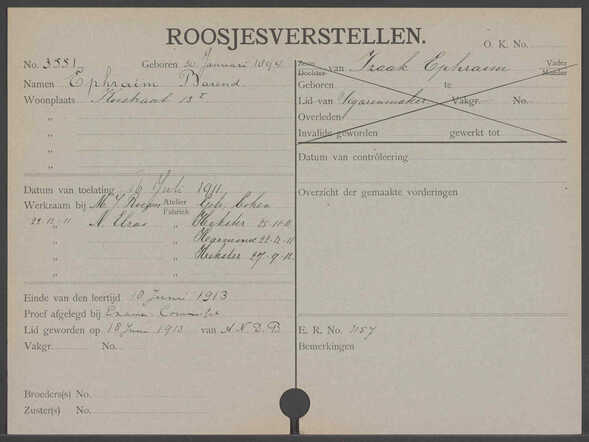 ROOSJESVERSTELLEN.
O. K. No.
No. 3551 Geboren 20 Januari 1894
Namen Ephraim Barend
Woonplaats
"
"
"
"
Datum van toelating 16 Juli 1911
Werkzaam bij M. J. Atelier Fabriek Gebr. Cohen
22-12-11 " N. Elzas " Hijkster 25-11-11
" " 22-12-11
" " Hekster 27-9-12
" "
Einde van den leertijd 10 Juni 1913
Proef afgelegd bij Exam. Commissie
Lid geworden op 18 Juni 1913 van A N D B
Vakgr. No.
Broeders(s) No.
Zuster(s) No.
Zoon Dochter van Izaak Ephraim Vader Moeder
Geboren te
Lid van Sigarenmaker Vakgr. No.
Overleden
Invalide geworden gewerkt tot
Datum van contrôleering
Overzicht der gemaakte vorderingen
E. R. No. 7157
Bemerkingen